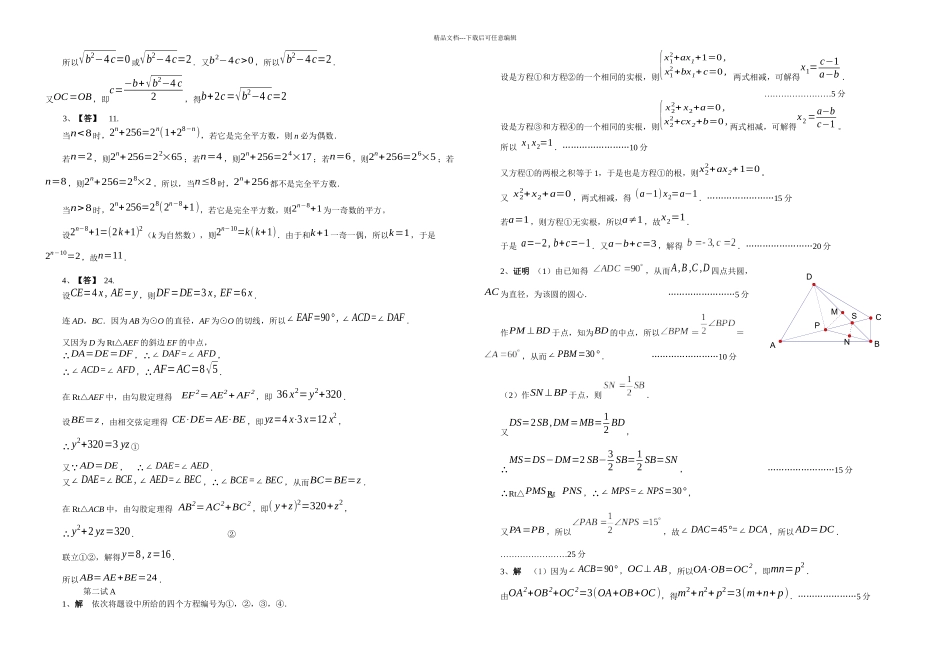 精品文档---下载后可任意编辑
所以√(b²−4c)=0或√(b²−4c)=2．又b²−4c>0，所以√(b²−4c)=2．
又OC=OB，即c=(−b+√(b²−4c))/2，得b+2c=√(b²−4c)=2
3、【答】 11.
当n<8时，2ⁿ+256=2ⁿ(1+2⁸⁻ⁿ)，若它是完全平方数，则 n 必为偶数．
若n=2，则2ⁿ+256=2²×65；若n=4，则2ⁿ+256=2⁴×17；若n=6，则2ⁿ+256=2⁶×5；若
n=8，则2ⁿ+256=2⁸×2，所以，当n≤8时，2ⁿ+256都不是完全平方数．
当n>8时，2ⁿ+256=2⁸(2ⁿ⁻⁸+1)，若它是完全平方数，则2ⁿ⁻⁸+1为一奇数的平方。
设2ⁿ⁻⁸+1=(2k+1)²（k 为自然数），则2ⁿ⁻¹⁰=k(k+1)．由于和k+1一奇一偶，所以k=1，于是
2ⁿ⁻¹⁰=2，故n=11．
4、【答】 24.
设CE=4x, AE=y，则DF=DE=3x, EF=6x．
连 AD，BC．因为 AB 为⊙O 的直径，AF 为⊙O 的切线，所以∠EAF=90°, ∠ACD=∠DAF．
又因为 D 为 Rt△AEF 的斜边 EF 的中点，
∴DA=DE=DF，∴∠DAF=∠AFD，
∴∠ACD=∠AFD，∴AF=AC=8√5．
在 Rt△AEF 中，由勾股定理得 EF²=AE²+AF²，即 36x²=y²+320．
设BE=z，由相交弦定理得 CE·DE=AE·BE，即yz=4x·3x=12x²，
∴y²+320=3yz ①
又∵AD=DE， ∴∠DAE=∠AED．
又∠DAE=∠BCE, ∠AED=∠BEC，∴∠BCE=∠BEC，从而BC=BE=z．
在 Rt△ACB 中，由勾股定理得 AB²=AC²+BC²，即(y+z)²=320+z²，
∴y²+2yz=320． ②
联立①②，解得y=8, z=16．
所以AB=AE+BE=24．
第二试 A
1、解 依次将题设中所给的四个方程编号为①，②，③，④．
设是方程①和方程②的一个相同的实根，则{x₁²+ax₁+1=0, x₁²+bx₁+c=0, 两式相减，可解得x₁=(c−1)/(a−b)．
……………………5 分
设是方程③和方程④的一个相同的实根，则{x₂²+x₂+a=0, x₂²+cx₂+b=0, 两式相减，可解得x₂=(a−b)/(c−1)。
所以 x₁x₂=1．……………………10 分
又方程①的两根之积等于 1，于是也是方程①的根，则x₂²+ax₂+1=0。
又 x₂²+x₂+a=0，两式相减，得 (a−1)x₂=a−1．……………………15 分
若a=1，则方程①无实根，所以a≠1，故x₂=1．
于是 a=−2, b+c=−1．又a−b+c=3，解得 b=-3, c=2．……………………20 分
2、证明 （1）由已知得 ∠ADC=90°，从而A,B,C,D四点共圆，
AC为直径，为该圆的圆心． ……………………5 分
作PM⊥BD于点，知为BD的中点，所以∠BPM=1/2∠BPD=
∠A=60°，从而∠PBM=30°． ……………………10 分
（2）作SN⊥BP于点，则 SN=1/2 SB．
又DS=2SB, DM=MB=1/2 BD，
∴MS=DS−DM=2SB−3/2 SB=1/2 SB=SN， ……………………15 分
∴Rt△PMS≌Rt PNS，∴∠MPS=∠NPS=30°，
又PA=PB，所以∠PAB=1/2∠NPS=15°，故∠DAC=45°=∠DCA，所以AD=DC．
……………………25 分
3、解 （1）因为∠ACB=90°，OC⊥AB，所以OA·OB=OC²，即mn=p²．
由OA²+OB²+OC²=3(OA+OB+OC)，得m²+n²+p²=3(m+n+p)．…………………5 分
D
M
S
C
P
N
A
B